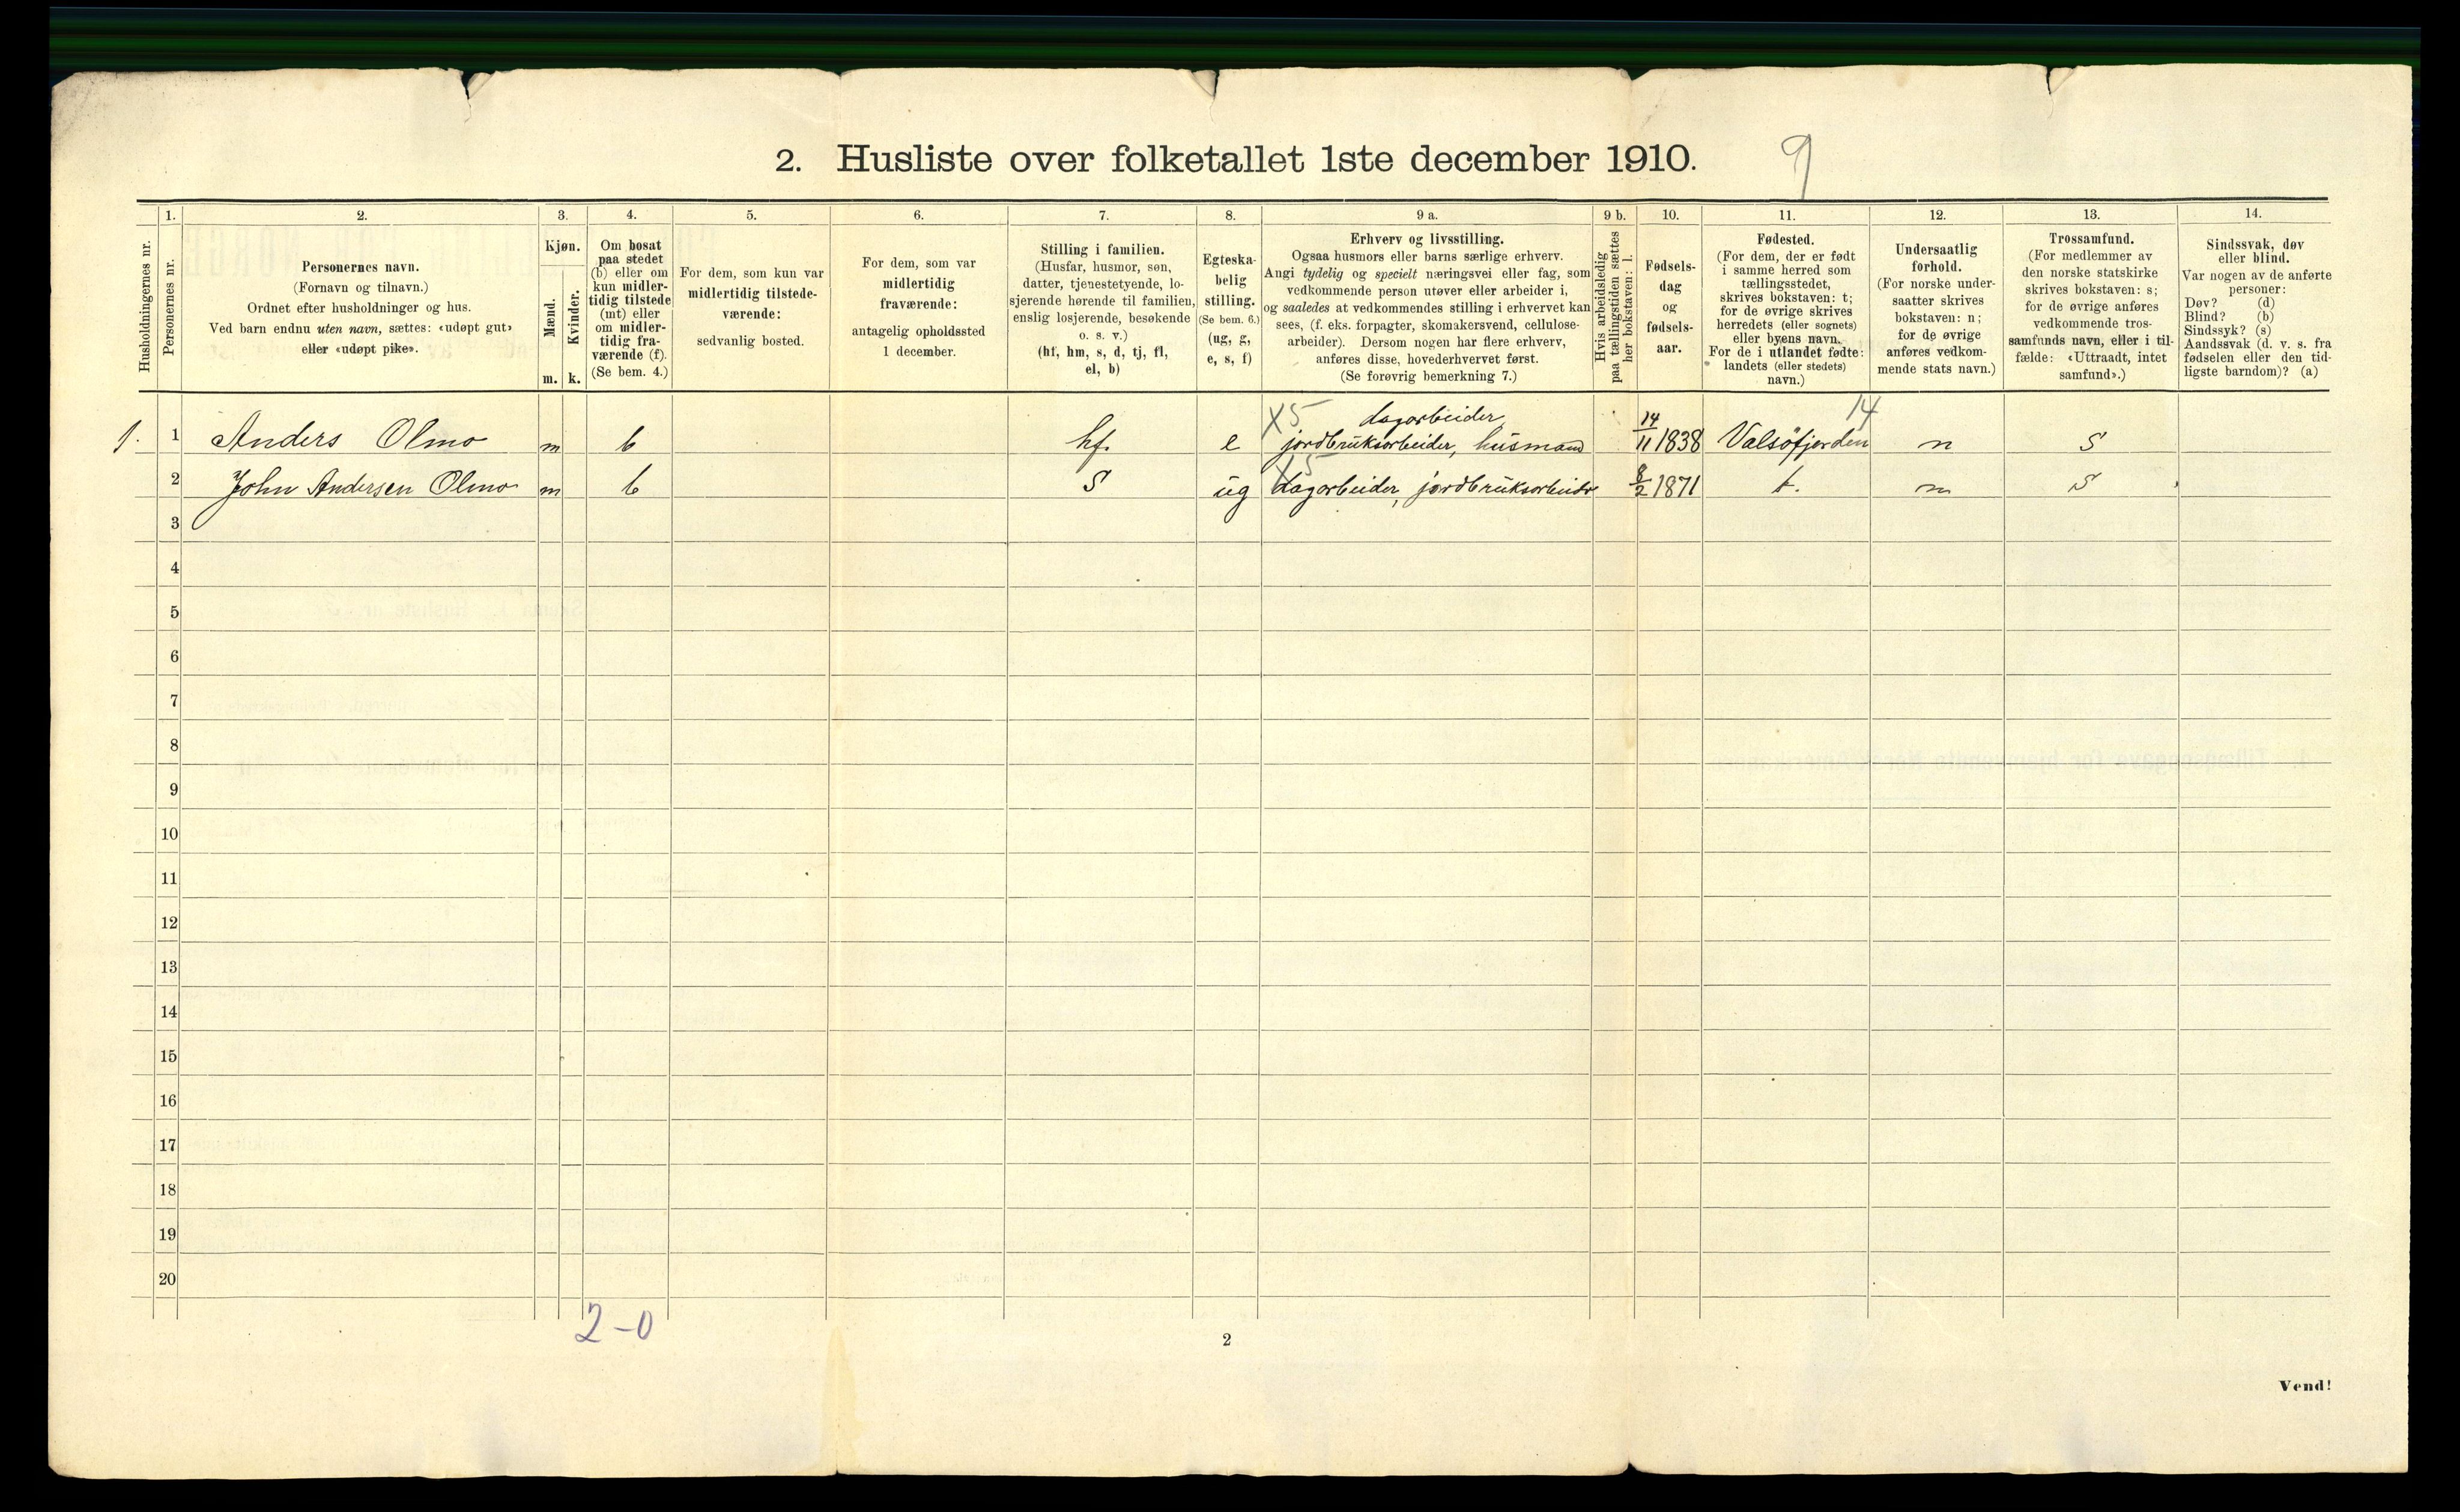 2. Husliste over folketallet 1ste december 1910. 9
1. 2. 3. 4. 5. 6. 7. 8. 9 a. 9 b. 10. 11. 12. 13. 14.
Husholdningernes nr.
Personernes nr.
Personernes navn.
(Fornavn og tilnavn.)
Ordnet efter husholdninger og hus.
Ved barn endnu uten navn, sættes: «udøpt gut»
eller «udøpt pike».
Kjøn.
Mænd.
Kvinder.
m. k.
Om bosat
paa stedet
(b) eller om
kun midler-
tidig tilstede
(mt) eller
om midler-
tidig fra-
værende (f).
(Se bem. 4.)
For dem, som kun var
midlertidig tilstede-
værende:
sedvanlig bosted.
For dem, som var
midlertidig
fraværende:
antagelig opholdssted
1 december.
Stilling i familien.
(Husfar, husmor, søn,
datter, tjenestetyende, lo-
sjerende hørende til familien,
enslig losjerende, besøkende
o. s. v.)
(hf, hm, s, d, tj, fl,
el, b)
Egteska-
belig
stilling.
(Se bem. 6.)
(ug, g,
e, s, f)
Erhverv og livsstilling.
Ogsaa husmors eller barns særlige erhverv.
Angi tydelig og specielt næringsvei eller fag, som
vedkommende person utøver eller arbeider i,
og saaledes at vedkommendes stilling i erhvervet kan
sees, (f. eks. forpagter, skomakersvend, cellulose-
arbeider). Dersom nogen har flere erhverv,
anføres disse, hovederhvervet først.
(Se forøvrig bemerkning 7.)
Hvis arbeidsledig
paa tællingstiden sættes
her bokstaven: l.
Fødsels-
dag
og
fødsels-
aar.
Fødested.
(For dem, der er født
i samme herred som
tællingsstedet,
skrives bokstaven: t;
for de øvrige skrives
herredets (eller sognets)
eller byens navn.
For de i utlandet fødte:
landets (eller stedets)
navn.)
Undersaatlig
forhold.
(For norske under-
saatter skrives
bokstaven: n;
for de øvrige
anføres vedkom-
mende stats navn.)
Trossamfund.
(For medlemmer av
den norske statskirke
skrives bokstaven: s;
for de øvrige anføres
vedkommende tros-
samfunds navn, eller i til-
fælde: «Uttraadt, intet
samfund».)
Sindssvak, døv
eller blind.
Var nogen av de anførte
personer:
Døv? (d)
Blind? (b)
Sindssyk? (s)
Aandssvak (d. v. s. fra
fødselen eller den tid-
ligste barndom)? (a)
X5 dagarbeider, 14
1. 1 Anders Olmo m b hf. e jordbruksarbeider, husmand 14/11 1838 Valsöfjorden n S
X5
2 John Andersen Olmo m b S ug dagarbeider, jordbruksarbeider 8/2 1871 t. n S
3
4
5
6
7
8
9
10
11
12
13
14
15
16
17
18
19
20
2-0
2
Vend!